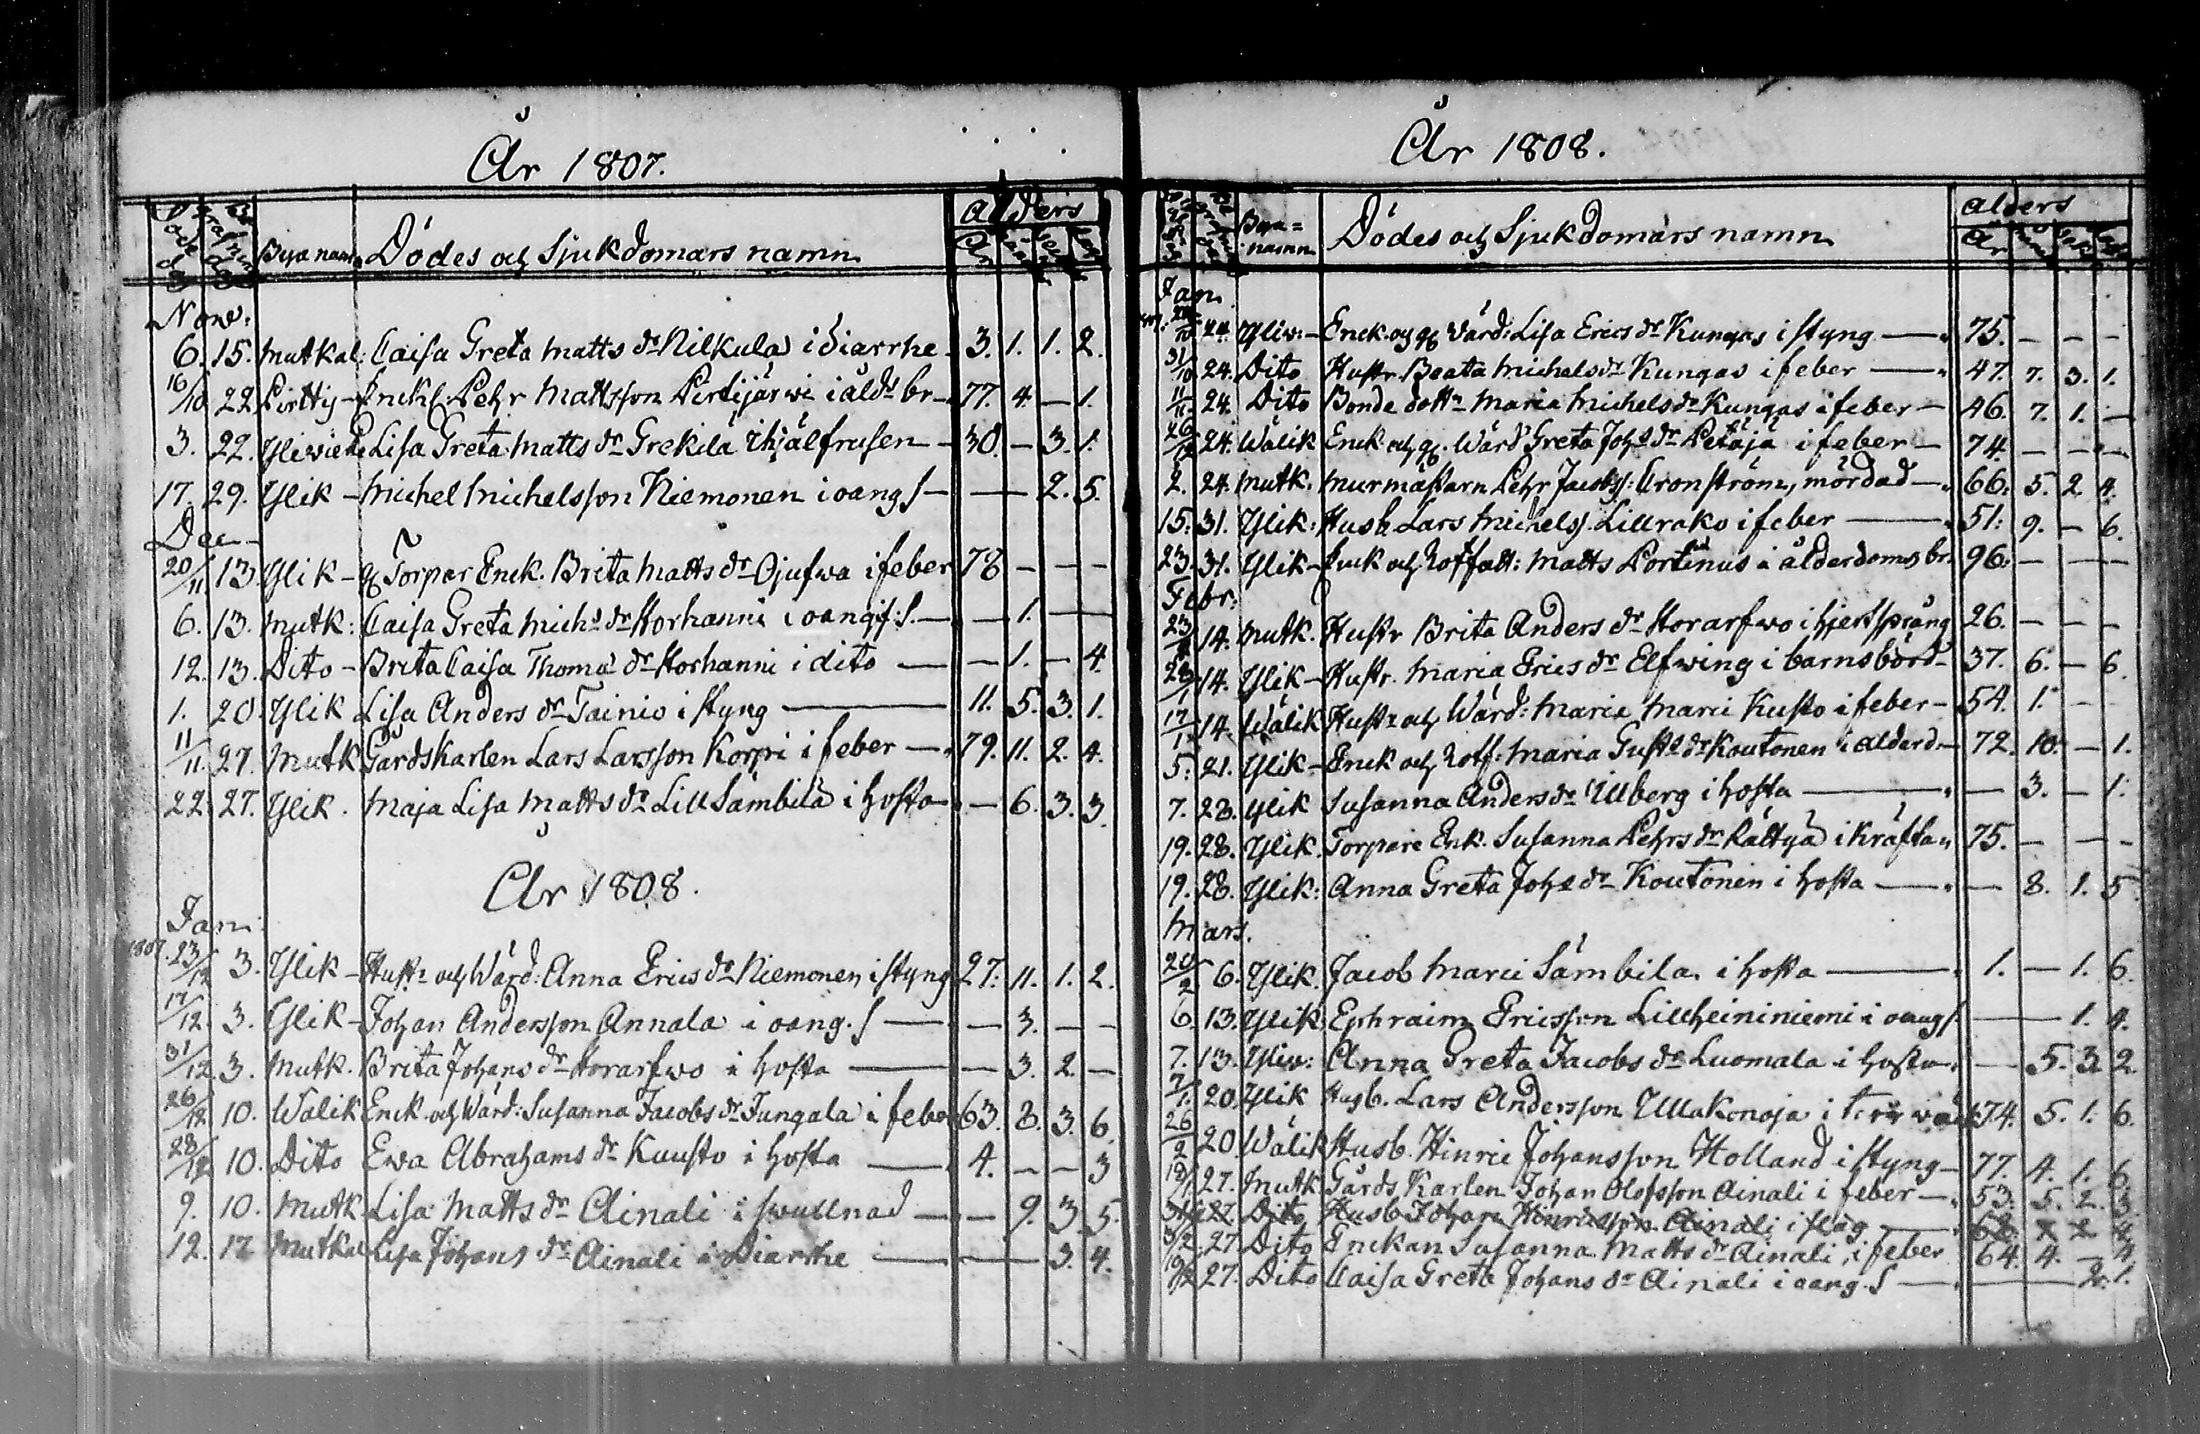 År 1807.
Döde dag Begrafnin dag Bya namn Dödes och Sjukdomars namn alders År
Now:
6. 15. Mutkal: Caisa Greta Matts dr Nilkula i diarrhe 3. 1. 1. 2.
16/10 22 Pirtty- Enckl Pehr Mattsson Pirtijärwi i åld br- 77. 4. - 1.
3. 22. Yliwieska Lisa Greta Matts dr Grekila ihjälfrusen - 30. - 3. 1.
17. 29. Ylik - Michel Michelsson Niemonen i oang S - - 2. 5.
Dec
20/11 13. Ylik - Torpar Enck. Brita Matts dr Ojufwa i feber 78 - - -
6. 13. Mutk: Caisa Greta Michs dr Storhanni i oangif: S. - - 1. -
12. 13. Dito - Brita Caisa Thoma dr Storhanni i dito - - 1. - 4.
1. 20. Ylik Lisa Anders dr Tainio i styng - 11. 5. 3. 1.
11/11. 27. Mutk Gårdskarlen Lars Larsson Korpi i feber - 79. 11. 2. 4.
22. 27. Ylik. Maja Lisa Matts dr Lill Sämbilä i hosta - - 6. 3. 3.
År 1808.
Jan:
1807. 23/12 3. Ylik - Hustr och Wärd: Anna Erics dr Niemonen i styng 27. 11. 1. 2.
17/12. 3. Ylik - Johan Andersson Annala i oang. S - - 3. - -
31/12 3. Mutk. Brita Johans dr Storarfwo i hosta - - 3. 2. -
26/12 10. Walik Enck och Wärd: Susanna Jacobs dr Jungala i feber 63. 8. 3. 6.
28/12 10. Dito Ewa Abrahams dr Kuusto i hosta - 4. - - 3
9. 10. Mutk Lisa Matts dr Ainali i swullnad - - 9. 3 5.
12. 17 Mutkal Lisa Johans dr Ainali i Diarrhe - - 3. 4.
År 1808.
Bya= namn Dödes och Sjukdomars namn alders År
Jan.
24. Yliw: - Enck. och Wärd: Lisa Erics dr Kungas i styng - 75. - - -
31/10 24. Dito Hustr. Beata Michels dr Kungas i feber - 47. 7. 3. 1.
11/11. 24. Dito Bonde dottr Maria Michels dr Kungas i feber - 46. 7. 1. -
26/12 24. Wälik Enck och Wärd Greta Johs dr Petäjä i feber - 74 - - -
2. 24. Mutk. Murmästarn Pehr Jacobs: Cronström, mördad - 66. 5. 2. 4.
15. 31. Ylik: Husb. Lars Michels: Lillrako i feber - 51: 9. - 6.
23. 31. Ylik - Enck och Matts Portinus i ålderdoms br. 96. - - -
Febr:
23 14. Mutk. Hustr Brita Anders dr Storarfwo i hjertsprång 26. - - -
28/1 14. Ylik - Hustr. Maria Erics dr Elfwing i barnsbörd - 37. 6. - 6
17/1 14. Wälik Hustr och Wärd: Maria Marci Kusto i feber - 54. 1. -
5. 21. Ylik - Enck och Maria Gust dr Koutonen i ålderd - 72. 10. - 1.
7. 28. Ylik Susanna Anders dr Ullberg i hosta - - 3. - 1.
19. 28. Ylik. Torpare Enk. Susanna Pehrs dr Rättyä i kräfta 75. - - -
19. 28. Ylik: Anna Greta Johs dr Koutonen i hosta - - 8. 1. 5
Mars.
20/2 6. Ylik. Jacob Marci Sämbila i hosta - 1. - 1. 6.
6. 13. Ylik Ephraim Ericsson Lillheiniemi i oang S - 1. 4.
7. 13. Yliw: Anna Greta Jacobs dr Luomala i hosta - - 5. 3 2.
7/1. 20. Ylik Husb. Lars Andersson Ullakonoja i 74. 5. 1. 6.
26/2 20 Wälik Husb. Hinric Johansson Holland i styng - 77. 4. 1. 6.
12/1 27. Mutk Gårds Karlen Johan Olofsson Ainali i feber - 53. 5. 2. 3
27 Dito Husb. Johan Hinricsson Ainali i slag - 68. 2 4
3/2 27 Dito Enckan Susanna Matts dr Ainali i feber 64. 4. - 4
19/2 27. Dito Caisa Greta Johans dr Ainali i oang. S - 2. 1.